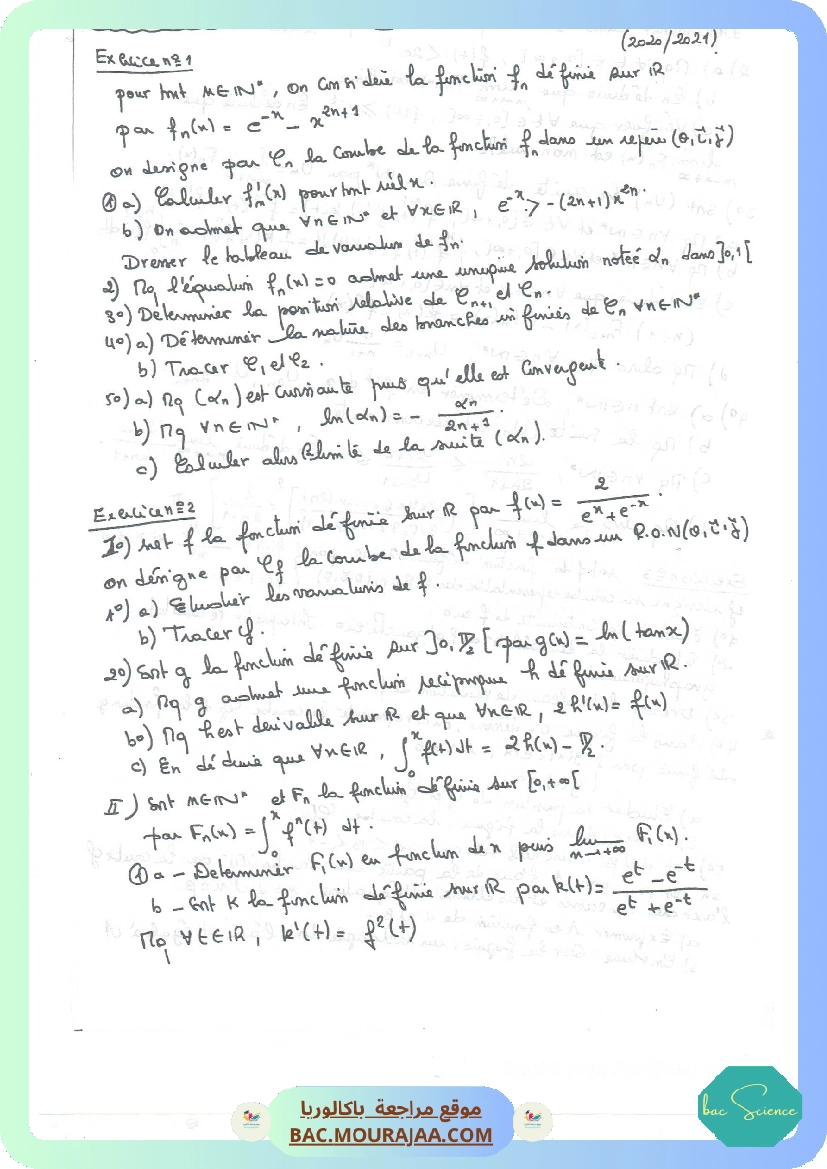 (2020/2021)
Exercice n=1
pour tout n∈IN*, on considère la fonction fn définie sur IR
par fn(x) = e^-x - x^2n+1
on designe par Cn la courbe de la fonction fn dans un repère (O,i,j)
① a) Calculer f'n(x) pour tout réel x.
b) On admet que ∀n∈IN* et ∀x∈IR, e^-x > -(2n+1)x^2n.
Dresser le tableau de variation de fn.
2) Mq l'équation fn(x)=0 admet une unique solution notée αn dans ]0,1[
3°) Déterminer la position relative de Cn+1 et Cn.
4°) a) Déterminer la nature des branches infinies de Cn ∀n∈IN*
b) Tracer C1 et C2.
5°) a) Mq (αn) est croissante puis qu'elle est convergente.
b) Mq ∀n∈IN*, ln(αn) = - αn/2n+1.
c) Calculer alors la limite de la suite (αn).
Exercice n=2
I°) soit f la fonction définie sur IR par f(x) = 2/e^x+e^-x.
on désigne par Cf la courbe de la fonction f dans un R.O.N(O,i,j)
1°) a) Etudier les variations de f.
b) Tracer Cf.
2°) Soit g la fonction définie sur ]0,π/2[ par g(x) = ln(tanx)
a) Mq g admet une fonction réciproque h définie sur IR.
b°) Mq h est derivable sur IR et que ∀x∈IR, 2h'(x) = f(x)
c) En déduire que ∀x∈IR, ∫0^x f(t)dt = 2h(x) - π/2.
II) Soit n∈IN* et Fn la fonction définie sur [0,+∞[
par Fn(x) = ∫0^x f^n(t) dt.
① a - Determiner F1(x) en fonction de x puis lim x→+∞ F1(x).
b - Soit k la fonction définie sur IR par k(t) = e^t - e^-t/e^t + e^-t
Mq ∀t∈IR, k'(t) = f²(t)
موقع مراجعة باكالوريا
BAC.MOURAJAA.COM
bac Science